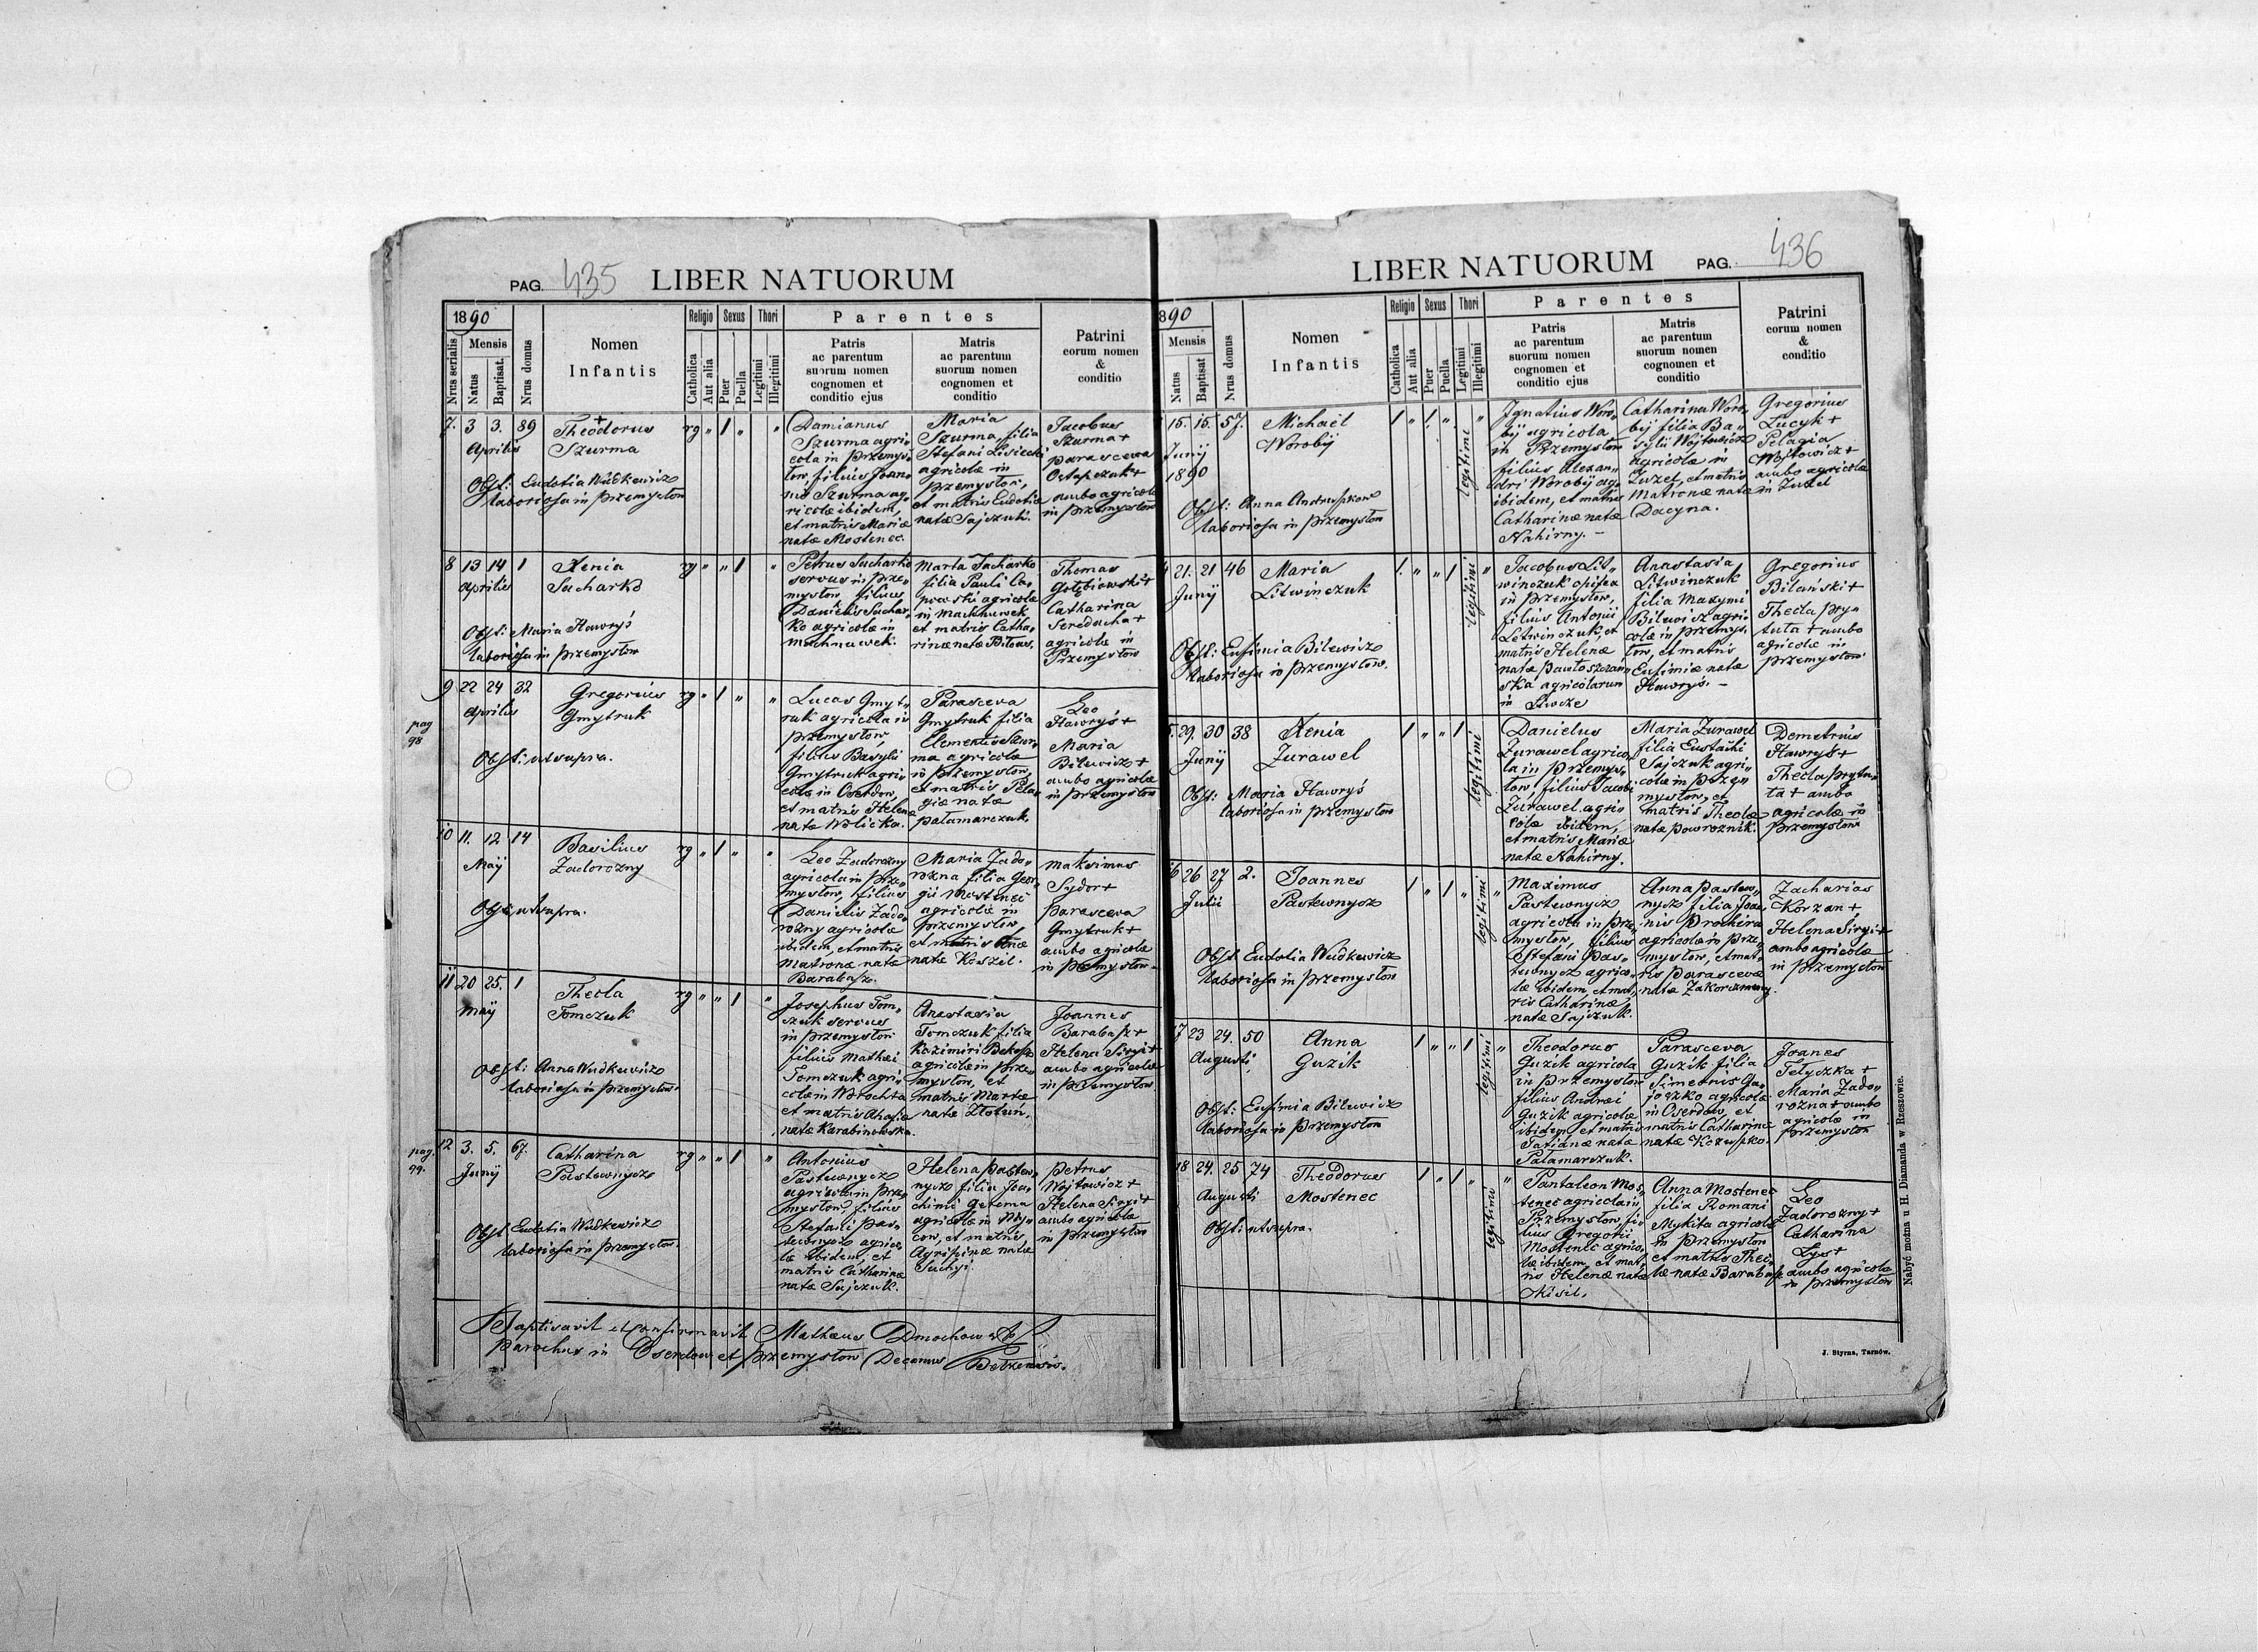 PAG. 435 LIBER NATUORUM
1890
Nrus serialis
Mensis
Natus
Baptisat.
Nrus domus
Nomen
Infantis
Religio
Catholica
Aut alia
Sexus
Puer
Puella
Thori
Legitimi
Illegitimi
Parentes
Patris
ac parentum
suorum nomen
cognomen et
conditio ejus
Matris
ac parentum
suorum nomen
cognomen et
conditio
Patrini
eorum nomen
&
conditio
7. 3 3. 89
Aprilis
Theodorus
Szurma
rg " 1 " "
Obst: Eudotia Wudkewicz
laboriosa in Przemysłow
Damianus
Szurma agri-
cola in Przemys-
low, filius Joan-
nis Szurma ag-
ricolæ ibidem,
et matris Mariæ
natæ Mostenec.
Maria
Szurma, filia
Stefani Lisiecki
agricolæ in
Przemysłow,
et matris Eudotiæ
natæ Sajczuk.
Jacobus
Szurma +
Parasceva
Ostapczuk +
ambo agricolæ
in Przemysłow
8 13 14 1
Aprilis
Xenia
Sucharko
rg " " 1 "
Obst: Maria Hawryś
laboriosa in Przemysłow
Petrus Sucharko
servus in Prze-
mysłow filius
Danielis Suchar-
ko agricolæ in
Machnuwek.
Maria Sucharko
filia Pauli
agricolæ
in Machnuwek
et matris Catha-
rinæ natæ Biłous.
Thomas
Gołębiowski +
Catharina
Sereducha +
agricolæ in
Przemysłow
9 22 24 32
Aprilis
pag
98
Gregorius
Gmytruk
rg " 1 " "
Obst: ut supra.
Lucas Gmyt-
ruk agricola in
Przemysłow,
filius Basylii
Gmytruk agri-
colæ in Oserdow,
et matris Helenæ
natæ Wolicka.
Parasceva
Gmytruk filia
Clementis Szur-
ma agricolæ
in Przemysłow,
et matris Pela-
giæ natæ
Pałamarczuk.
Leo
Hawryś +
Maria
Bilewicz +
ambo agricolæ
in Przemysłow
10 11. 12 14
Maij
Basilius
Zadorozny
rg " 1 " "
Obst: ut supra.
Leo Zadorozny
agricola in Prze-
mysłow, filius
Danielis Zado-
rozny agricolæ
ibidem, et matris
Matronæ natæ
Barabasz.
Maria Zado-
rozna filia Geor-
gii Mostenec
agricolæ in
Przemysłow
et matris Annæ
natæ Koszil.
Maksimus
Sydor +
Parasceva
Gmytruk +
ambo agricolæ
in Przemysłow
11 20 25. 1
Maij
Thecla
Tomczuk
rg " " 1 "
Obst: Anna Wudkewicz
laboriosa in Przemysłow.
Josephus Tom-
czuk servus
in Przemysłow
filius Mathei
Tomczuk agri-
colæ in Worochta
et matris Ahafia
natæ Karabinowska.
Anastasia
Tomczuk filia
Kazimiri
agricolæ in Prze-
mysłow, et
matris Martæ
natæ Złotuń.
Joannes
Barabasz +
Helena Siryi +
ambo agricolæ
in Przemysłow
12 3. 5. 67.
Junij
pag.
99.
Catharina
Pastewnycz
rg " " 1 "
Obst: Eudotia Wudkewicz
laboriosa in Przemysłow.
Antonius
Pastewnycz
agricola in Prze-
mysłow, filius
Stefani Pas-
tewnycz agrico-
læ ibidem, et
matris Catharinæ
natæ Sajczuk.
Helena Pastew-
nycz filia Joa-
chimi Gerema
agricolæ in
et matris,
Agripinæ natæ
Suchyj.
Petrus
Wojtowicz +
Helena Siryi +
ambo agricolæ
in Przemysłow
Baptisavit et confirmavit Matheus Dmochowski
Parochus in Oserdow et Przemysłow Decanus Bełzensis.
LIBER NATUORUM PAG. 436
890
Mensis
Natus
Baptisat
Nrus domus
Nomen
Infantis
Religio
Catholica
Aut alia
Sexus
Puer
Puella
Thori
Legitimi
Illegitimi
Parentes
Patris
ac parentum
suorum nomen
cognomen et
conditio ejus
Matris
ac parentum
suorum nomen
cognomen et
conditio
Patrini
eorum nomen
&
conditio
15. 15. 57.
Junij
1890
Michaël
Worobij
1 " 1 " legitimi "
Obst: Anna Andruszkow
laboriosa in Przemysłow
Ignatius Woro-
bij agricola
in Przemysłow
filius Alexan-
dri Worobij ag-
ibidem, et matris
Catharinæ natæ
Nahirny. –
Catharina Woro-
bij filia Ba-
sylii Wojtowicz
agricolæ in
Żużel, et matris
Matronæ natæ
Dacyna.
Gregorius
Lucyk +
Pelagia
Wojtowicz +
ambo agricolæ
in Żużel
21. 21 46
Junij
Maria
Litwinczuk
1. " " 1 legitimi "
Obst: Eufimia Bilewicz
laboriosa in Przemysłow.
Jacobus Lit-
winczuk opifex
in Przemysłow,
filius Antonii
Litwinczuk, et
matris Helenæ
natæ Pawłoszczań-
ska agricolarum
in Liwcze
Anastasia
Litwinczuk
filia Maxymi
Bilewicz agri-
colæ in Przemys-
low, et matris
Eufimiæ natæ
Hawryś. –
Gregorius
Bilański +
Thecla Pry-
tuła + ambo
agricolæ in
Przemysłow
5. 29. 30 38
Junij
Xenia
Żurawel
1 " " 1 legitimi "
Obst: Maria Hawryś
laboriosa in Przemysłow
Danielus
Żurawel agrico-
la in Przemys-
low, filius Jacobi
Żurawel agri-
colæ ibidem,
et matris Mariæ
natæ Nahirny.
Maria Żurawel
filia Eustachi
Sajczuk agri-
colæ in Prze-
mysłow, et
matris Theclæ
natæ Powroznik.
Demetrius
Hawryś +
Thecla Prytu-
ła + ambo
agricolæ in
Przemysłow
16 26 27 2.
Julii
Joannes
Pastewnycz
1 " 1 " legitimi "
Obst: Eudotia Wudkewicz
laboriosa in Przemysłow
Maximus
Pastewnycz
agricola in Prze-
mysłow, filius
Stefani Pas-
tewnycz agrico-
læ ibidem, et mat-
ris Catharinæ,
natæ Sajczuk.
Anna Pastew-
nycz filia Joan-
nis Prockira
agricolæ in Prze-
mysłow, et mat-
ris Parascevæ
natæ Zakorczmenny.
Zacharias
Korzan +
Helena Siryi +
ambo agricolæ
in Przemysłow
17 23 24. 50
Augusti,
Anna
Guzik
1 " " 1 legitimi "
Obst: Eufimia Bilewicz
laboriosa in Przemysłow
Theodorus
Guzik agricola
in Przemysłow
filius Andrei
Guzik agricolæ
ibidem, et matris
Tatianæ natæ
Pałamarczuk.
Parasceva
Guzik filia
Simeonis Ga-
joczko agricolæ
in Oserdow, et
matris Catharinæ
natæ Kozuszko.
Joanes
Telyczka +
Maria Zado-
rozna + ambo
agricolæ in
Przemysłow
18 24. 25 74
Augusti
Theodorus
Mostenec
1 " 1 " legitimi "
Obst: ut supra.
Pantaleon Mos-
tenec agricola in
Przemysłow, fi-
lius Gregorii
Mostenec agrico-
læ ibidem, et mat-
ris Helenæ natæ
Kisil.
Anna Mostenec
filia Romani
Mykita agricolæ
in Przemysłow
et matris Thec-
læ natæ Barabasz
Leo
Zadorozny +
Catharina
Łys +
ambo agricolæ
in Przemysłow
J. Styrna, Tarnów.
Nabyć można u H. Diamanda w Rzeszowie.